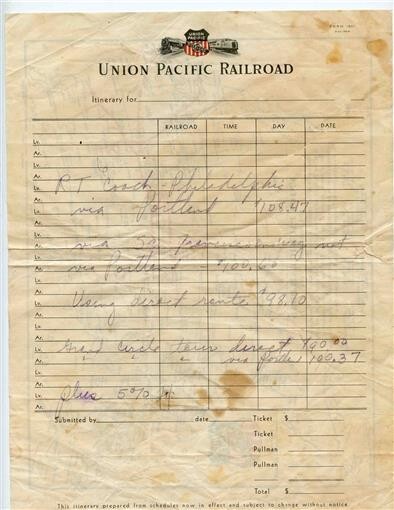 UNION PACIFIC
UNION PACIFIC RAILROAD
Itinerary for
RAILROAD TIME DAY DATE
Lv.
Ar.
Lv.
Ar.
R T Coach - Philadelphia
Lv.
Ar.
via Portland $108.47
Lv.
Ar.
via San one way not
Lv.
via Portland - $100.60
Ar.
Lv.
Using direct route $98.10
Ar.
Lv.
Ar.
Grand Circle tour direct $90.00
Lv.
" " via Portl 100.37
Ar.
Lv.
plus 5%
Ar.
Submitted by date Ticket $
Ticket
Pullman
Pullman
Total $
This itinerary prepared from schedules now in effect and subject to change without notice